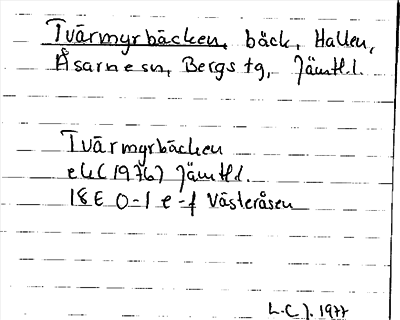 Tvärmyrbäcken, bäck, Hallen,
Åsarne sn, Bergs tg, Jämtl.l.
Tvärmyrbäcken
ek (1976) Jämtl.l.
18E 0-1 e-f Västeråsen
L.C.J. 1977